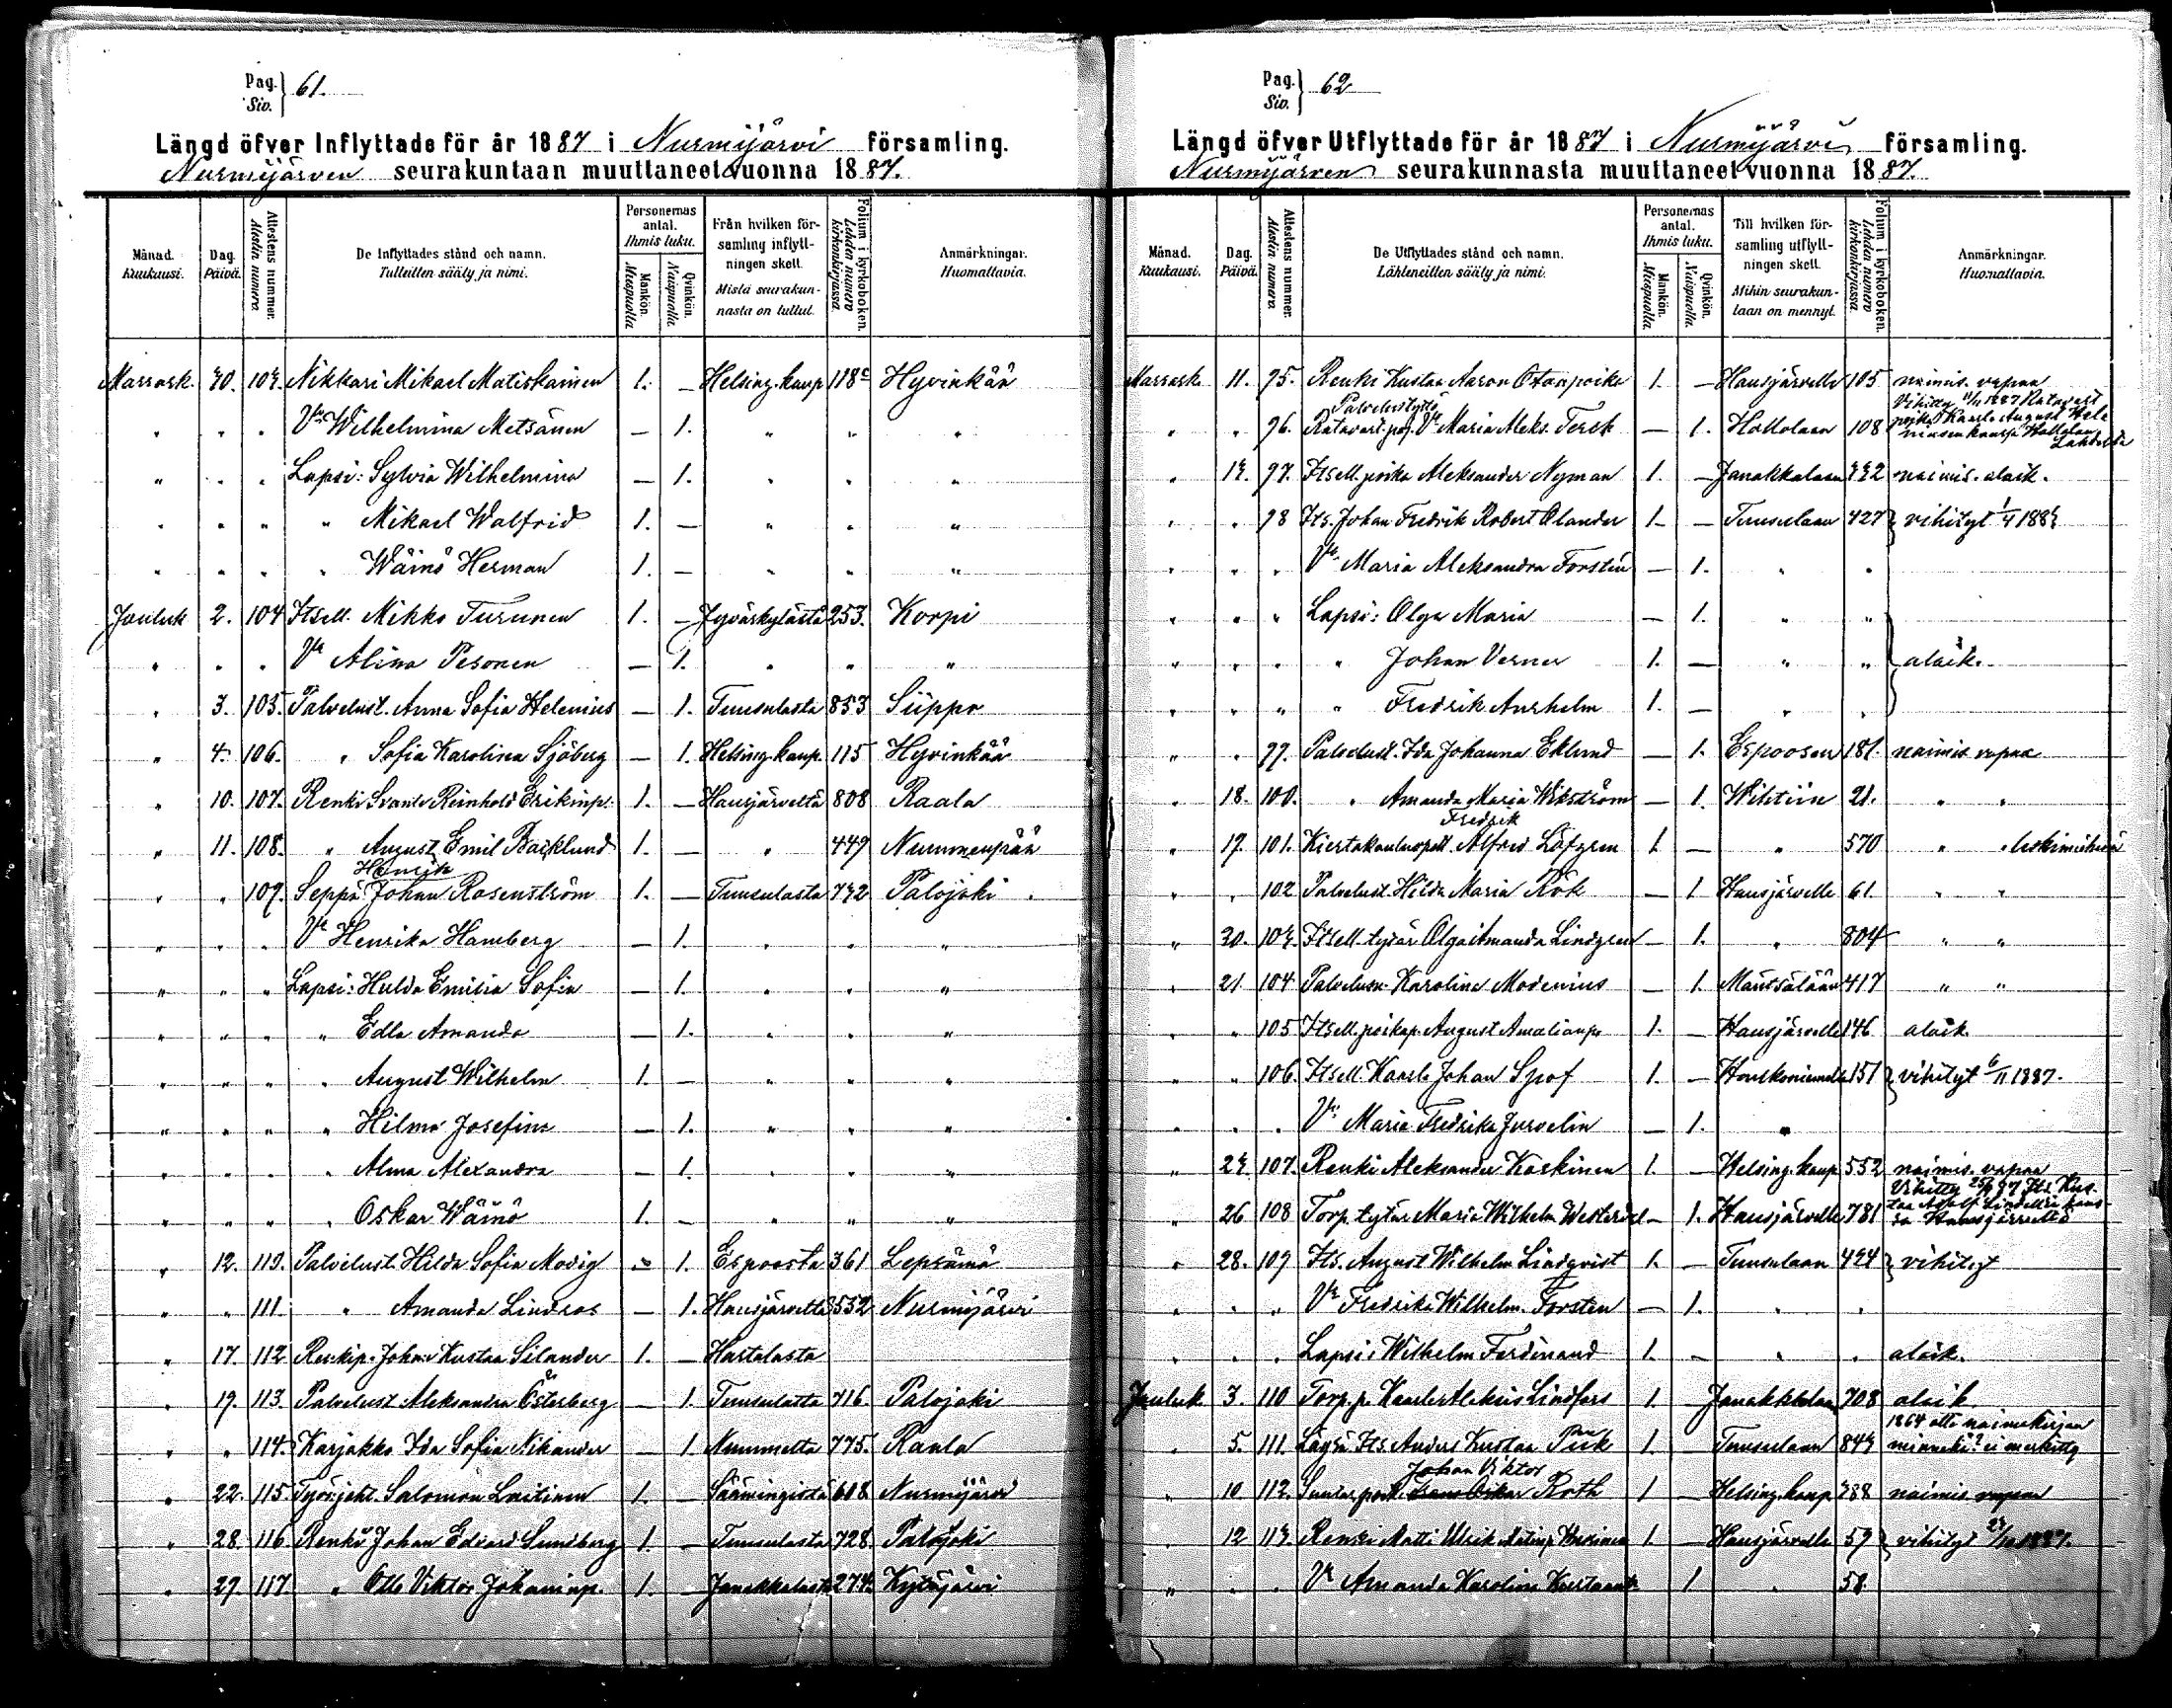 Pag. } 61.
Siv.
Längd öfver Inflyttade för år 1887 i Nurmijärvi församling.
Nurmijärven seurakuntaan muuttaneet vuonna 1887.
Månad. Kuukausi. Dag. Päivä. Attestens nummer. Atestin numero De Inflyttades stånd och namn. Tulleitten sääty ja nimi. Personernas antal. Ihmis luku. Mankön. Miespuolia Qvinkön. Naispuolia. Från hvilken församling inflyttningen skett. Mistä seurakunnasta on tullut. Folium i kyrkoboken. Lehden numero kirkonkirjassa. Anmärkningar. Huomattavia.
Marrask. 30. 103. Nikkari Mikael Matiskainen 1. — Helsing. kaup 118c Hyvinkää
" " " Vo Wilhelmina Metsänen — 1. " " "
" " " Lapsi: Sylvia Wilhelmina — 1. " " "
" " " " Mikael Walfrid 1. — " " "
" " " " Wäinö Herman 1. — " " "
Jouluk 2. 104 Itsell. Mikko Turunen 1. — Jyväskylästä 253. Korpi
" " " Vo Alina Pesonen — 1. " " "
" 3. 105. Palvelust. Anna Sofia Helenius — 1. Tuusulasta 853 Siippo
" 4. 106. " Sofia Karolina Sjöberg — 1. Helsing. kaup. 115 Hyvinkää
" 10. 107. Renki Svante Reinhold Erikinp. 1. — Hausjärveltä 808 Raala
" 11. 108. " August Emil Bäcklund 1. — " 449 Nummenpää
Henrik
" " 109. Seppä Johan Rosenström 1. — Tuusulasta 732 Palojoki
" " " Vo Henrika Hamberg — 1. " " "
" " " Lapsi: Hulda Emilia Sofia — 1. " " "
" " " " Edla Amanda — 1. " " "
" " " " August Wilhelm 1. — " " "
" " " " Hilma Josefina — 1. " " "
" " " " Alma Alexandra — 1. " " "
" " " " Oskar Wäinö 1. — " " "
" 12. 110. Palvelust. Hilda Sofia Modig — 1. Espoosta 361 Lepsämä
" " 111. " Amanda Lindros — 1. Hausjärveltä 552 Nurmijärvi
" 17. 112 Renkip. Johan Kustaa Silander 1. — Hartolasta
" 19. 113. Palvelust. Aleksandra Österberg — 1. Tuusulasta 716. Palojoki
" " 114. Karjakko Ida Sofia Nikander — 1. Nummelta 775. Raala
" 22. 115. Työnjoht. Salomon Laitinen 1. — Säämingistä 608 Nurmijärvi
" 28. 116. Renki Johan Edvard Sundberg 1. — Tuusulasta 728. Palojoki
" 29. 117 " Otto Viktor Johaninp. 1. — Janakkalasta 274. Kytäjärvi
Pag. } 62
Siv.
Längd öfver Utflyttade för år 1887 i Nurmijärvi församling.
Nurmijärven seurakunnasta muuttaneet vuonna 1887.
Månad. Kuukausi. Dag. Päivä. Attestens nummer. Atestin numero De Utflyttades stånd och namn. Lähteneitten sääty ja nimi. Personernas antal. Ihmis luku. Mankön. Miespuolia Qvinkön. Naispuolia. Till hvilken församling utflyttningen skett. Mihin seurakuntaan on mennyt. Folium i kyrkoboken. Lehden numero kirkonkirjassa. Anmärkningar. Huomattavia.
Marrask. 11. 95. Renki Kustaa Aaron Otonpoika 1. — Hausjärvelle 105 naimis. vapaa
Palvelustyttö Vihitty 11/11 1887 Ratavart
" " 96. Ratavart. poj. Vo Maria Aleks. Terck — 1. Hollolaan 108 pojka Kaarlo August kanssa Hollolan Lahdella
" 13. 97. Itsell. poika Aleksander Nyman 1. — Janakkalaan 332 naimis. alaik.
" " 98 Its. Johan Fredrik Robert Olander 1. — Tuusulaan 427 } vihityt
" " " Vo Maria Aleksandra Forstén — 1. " "
" " " Lapsi: Olga Maria — 1. " "
" " " " Johan Verner 1. — " " } alaik.
" " " " Fredrik Anshelm 1. — " "
" " 99. Palvelust. Ida Johanna Eklund — 1. Espoosen 181. naimis vapaa
" 18. 100. " Amanda Maria Wikström — 1. Wihtiin 21. " "
Fredrik
" 19. 101. Kiertokouluopett. Alfred Löfgren 1. — " 570 " " leskimiehenä
" " 102 Palvelust. Hilda Maria Rök — 1 Hausjärvelle 61. " "
" 20. 103. Itsell. tytär Olga Amanda Lindgren — 1. " 804 " "
" 21. 104 Palvelust. Karolina Modenius — 1. Mäntsälään 417 " "
" " 105 Itsell. poikap. August Amalianp. 1. — Hausjärvelle 146 alaik.
" " 106. Itsell. Kaarle Johan Spof 1. — 151 } vihityt 6/11 1887.
" " " Vo Maria Fredrika Jurvelin — 1. "
" 23. 107. Renki Aleksander Koskinen 1. — Helsing. kaup. 552 naimis. vapaa
" 26 108 Torp. tytär Maria Wilhelm. — 1. Hausjärvelle 781 Vihitty Its Kustaa Adolf Lindellin kanssa Hausjärvellä
" 28. 109 Its. August Wilhelm Lindqvist 1. — Tuusulaan 494 } vihityt
" " " Vo Fredrika Wilhelm. Forstén — 1. " "
" " " Lapsi: Wilhelm Ferdinand 1. — " " alaik.
Jouluk 3. 110 Torp. p. Kaarle Aleksis Lindfors 1. Janakkalaan 708 alaik.
" 5. 111. Its. Anders Kustaa Piik 1. — Tuusulaan 843 1864
Johan Viktor
" 10 112. Suutar. poik. Frans Oskar Roth 1 — Helsing. kaup. 388 naimis vapaa
" 12 113. Renki Matti Ulrik 1. — Hausjärvelle 59 } vihityt 1887.
" " " Vo Amanda Karolina 1 " 58.